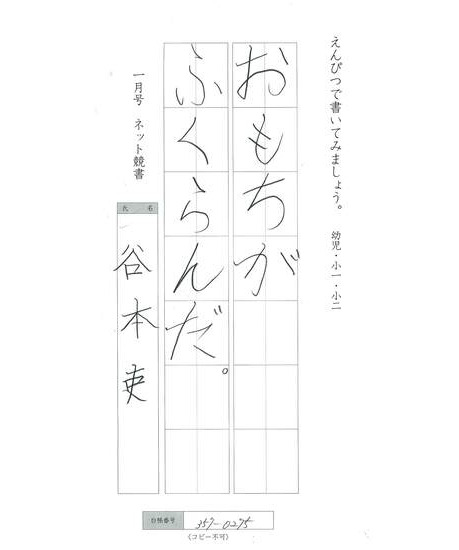 えんぴつで書いてみましょう。 幼児・小一・小二
おもちが
ふくらんだ。
一月号 ネット競書
氏名
谷本吏
台帳番号 357-0275
(コピー不可)